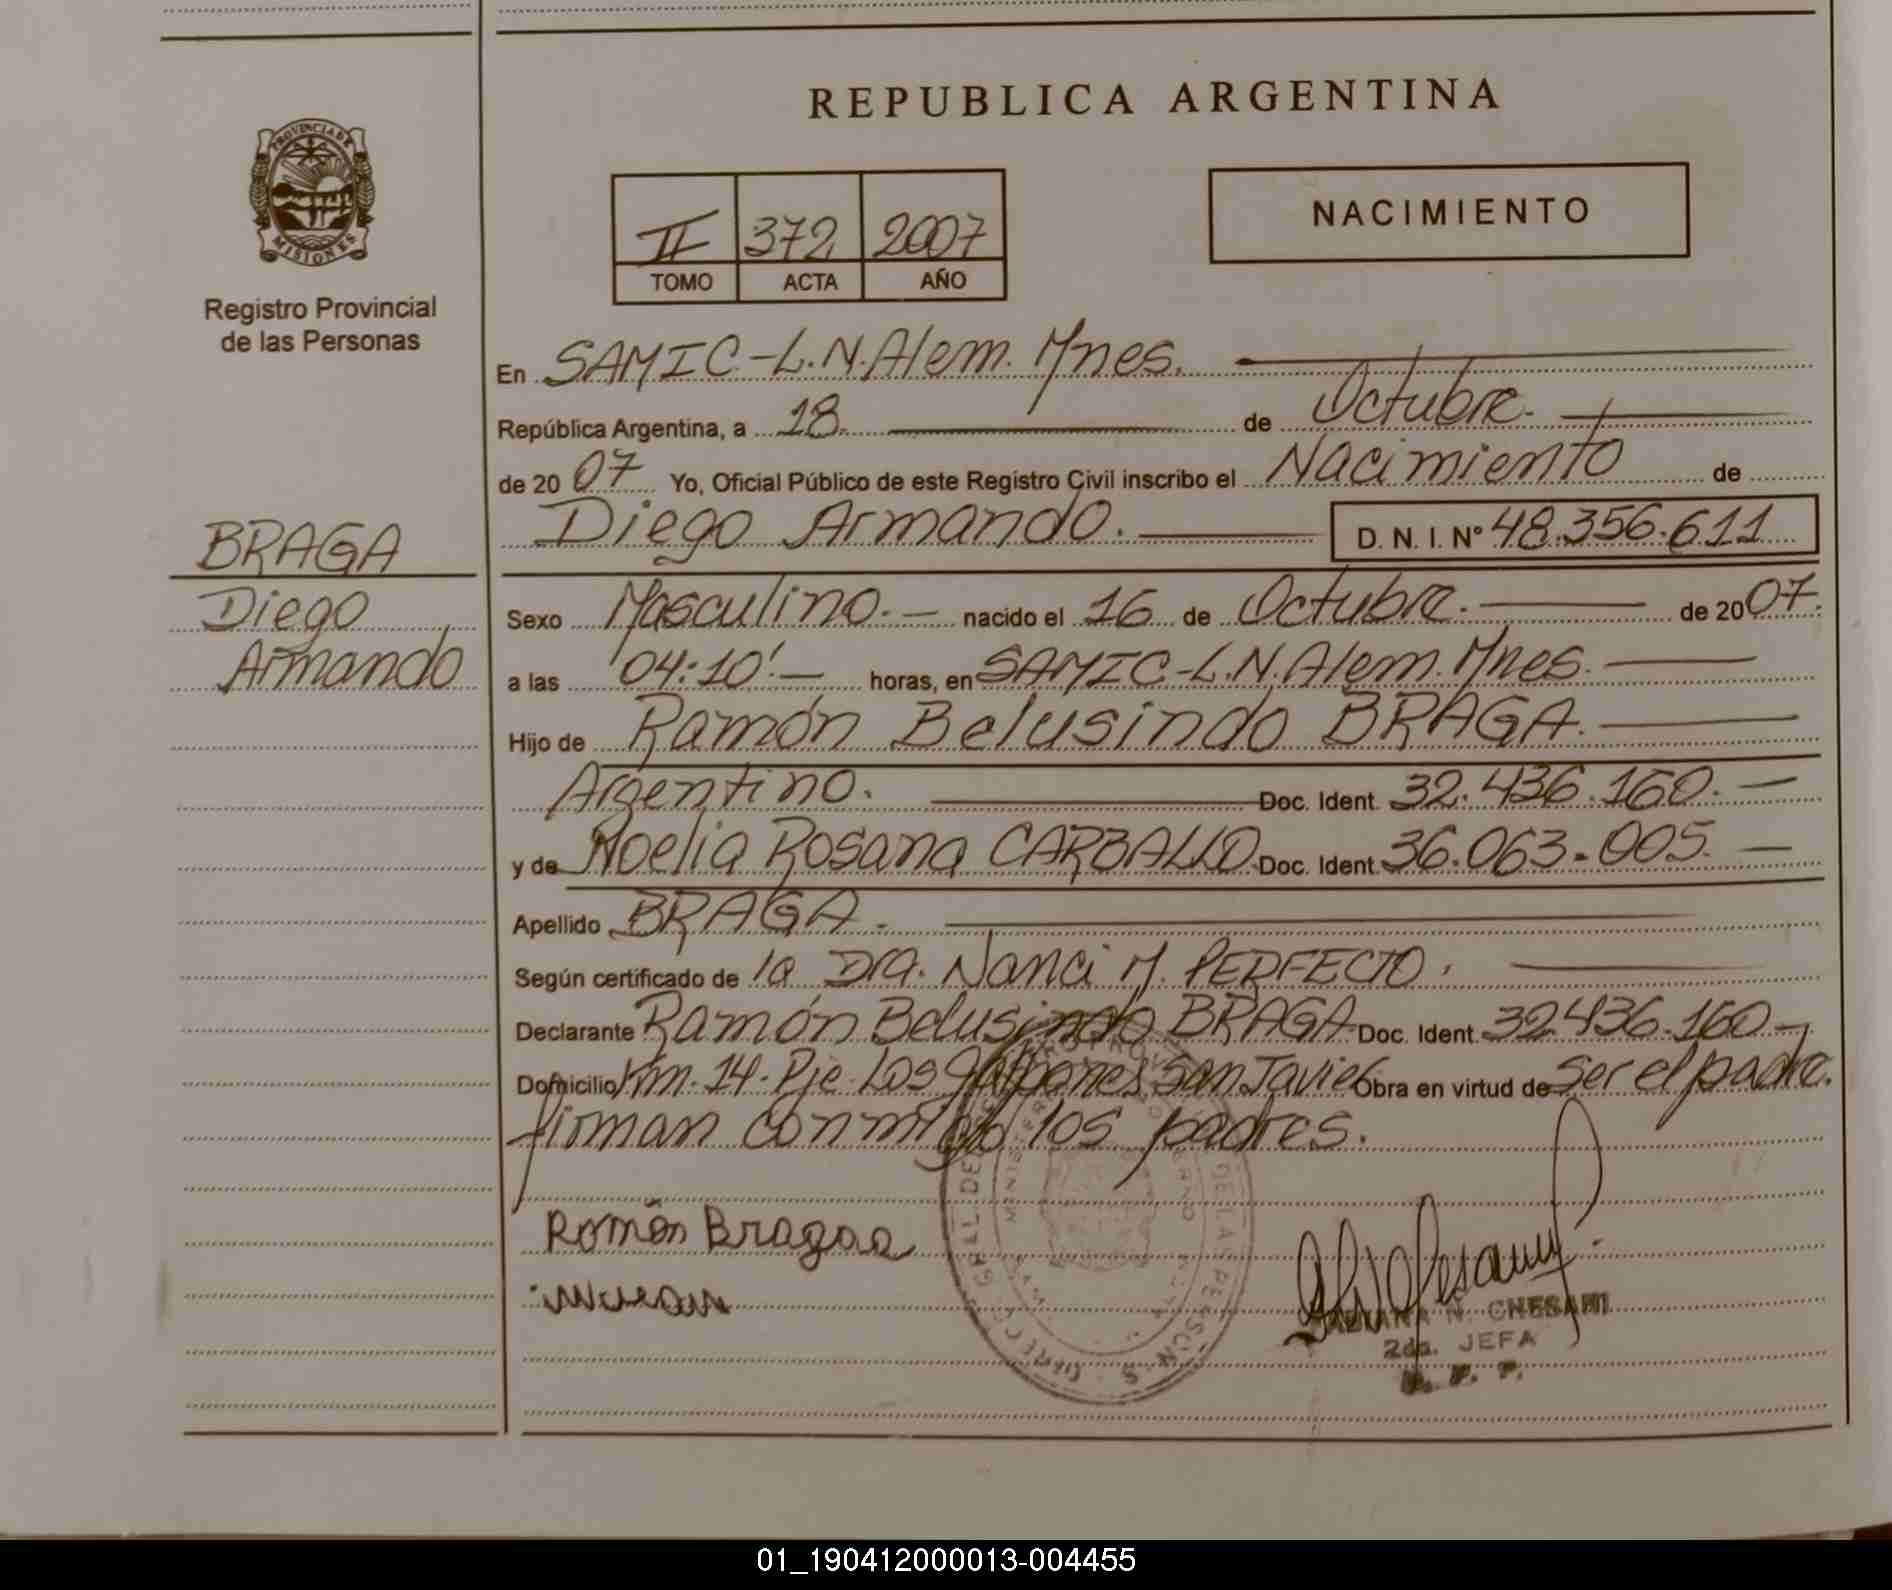 REPUBLICA ARGENTINA
PROVINCIA DE
MISIONES
Registro Provincial
de las Personas
II 372 2007
TOMO ACTA AÑO
NACIMIENTO
En SAMIC-L.N.Alem. Mnes.
República Argentina, a 18. de Octubre.
de 2007 Yo, Oficial Público de este Registro Civil inscribo el Nacimiento de
Diego Armando. D. N. I. Nº 48.356.611
BRAGA
Diego
Armando
Sexo Masculino. nacido el 16 de Octubre. de 2007.
a las 04:10' horas, en SAMIC-L.N.Alem. Mnes.
Hijo de Ramón Belusindo BRAGA.
Argentino. Doc. Ident. 32.436.160.
y de Noelia Rosana CARBALLO Doc. Ident. 36.063.005.
Apellido BRAGA.
Según certificado de la Dra. Nanci M. PERFECTO.
Declarante Ramón Belusindo BRAGA Doc. Ident. 32.436.160
Domicilio Km. 14. Pje. Los Galpones San Javier Obra en virtud de Ser el padre.
firman conmigo los padres.
Ramón Bragaa
N. CHESANI
2da. JEFA
01_190412000013-004455